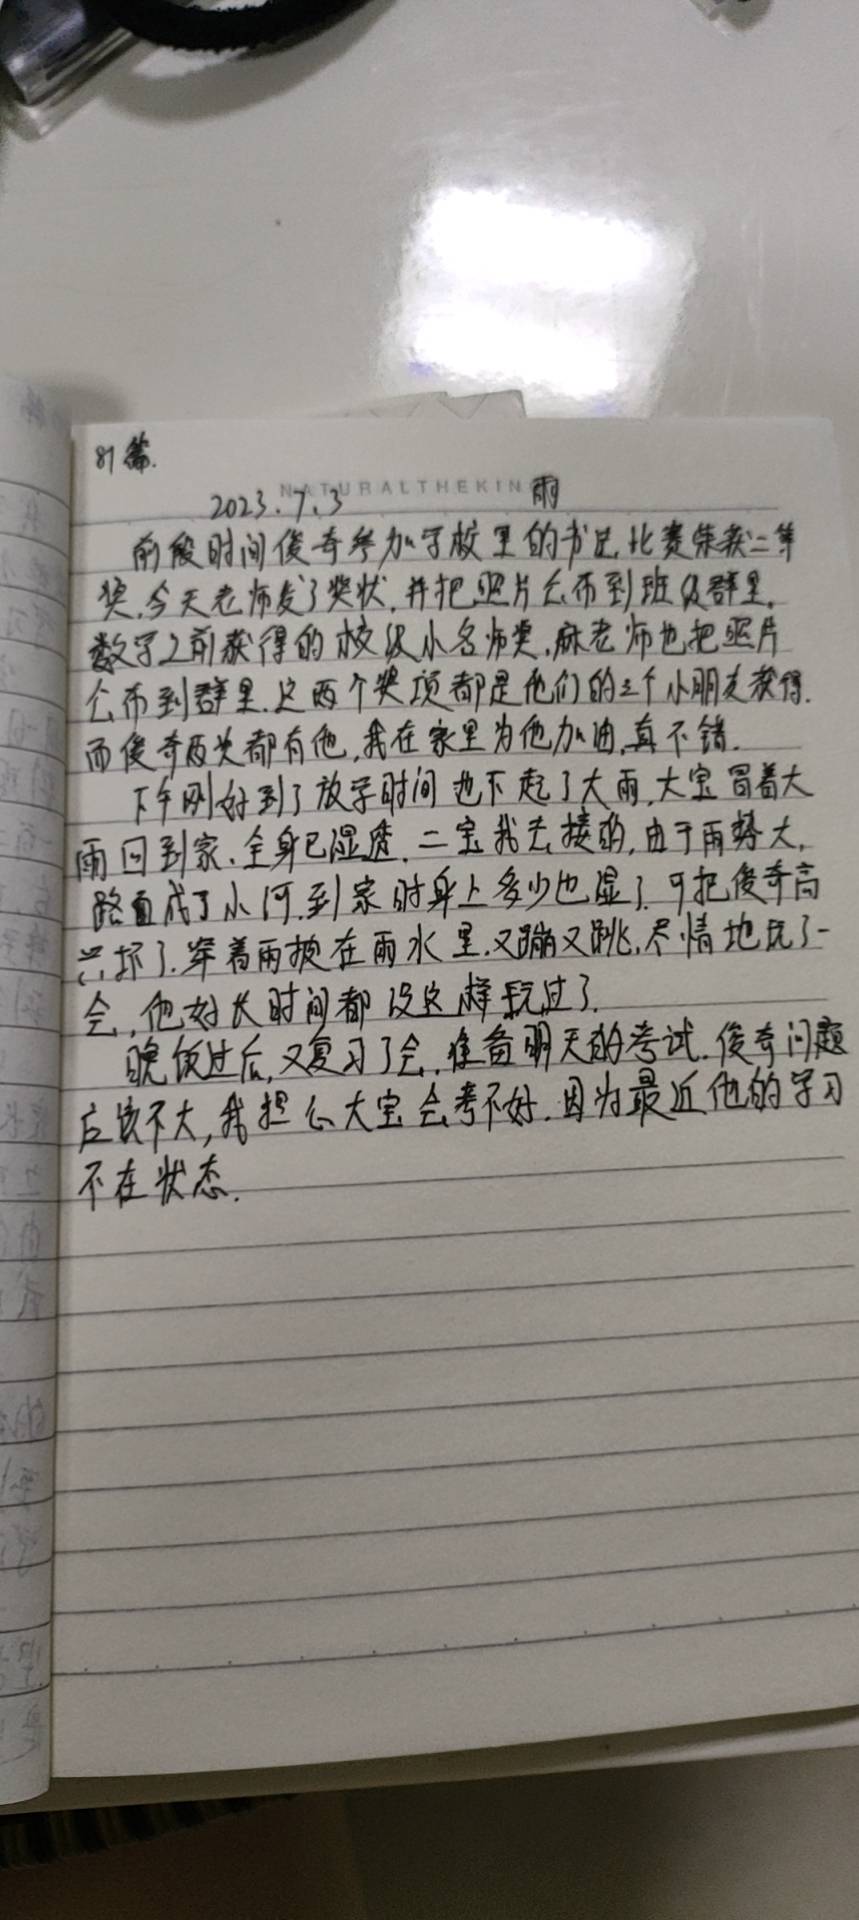 81篇.
NATURALTHEKIN
2023.7.3 雨
前段时间俊奇参加学校里的书记,比赛荣获二等
奖,今天老师发了奖状,并把照片公布到班级群里,
数学之前获得的校级小名师奖,麻老师也把照片
公布到群里.这两个奖项都是他们的三个小朋友获得.
而俊奇两次都有他,我在家里为他加油,真不错.
下午刚好到了放学时间也下起了大雨,大宝冒着大
雨回到家,全身已湿透,二宝我去接的,由于雨势大,
路面成了小河,到家时身上多少也湿了.可把俊奇高
兴坏了.穿着雨披在雨水里,又蹦又跳,尽情地玩了一
会,他好长时间都没这样玩过了.
晚饭过后,又复习了会,准备明天的考试.俊奇问题
应该不大,我担心大宝会考不好.因为最近他的学习
不在状态.